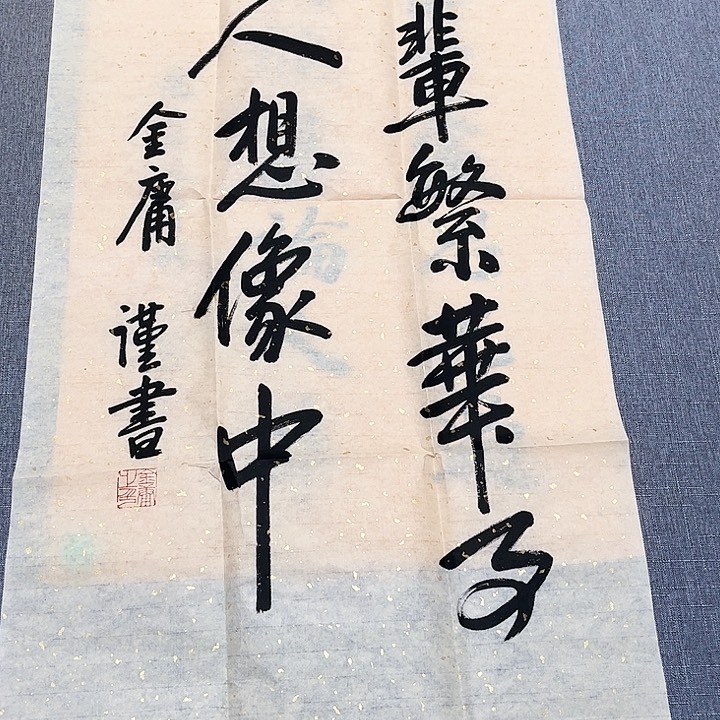 輩繁華子
人想像中
金庸 謹書